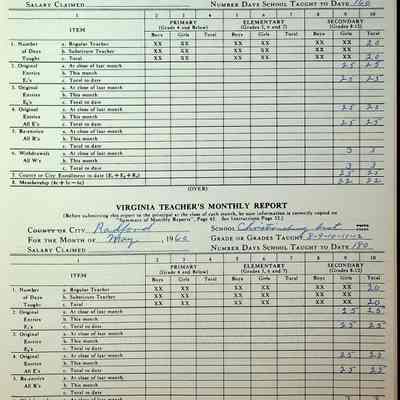 SALARY CLAIMED NUMBER DAYS SCHOOL TAUGHT TO DATE 160
PRIMARY ELEMENTARY SECONDARY
(Grade 4 and Below) (Grades 5, 6 and 7) (Grades 8-12)
ITEM Boys Girls Boys Girls Boys Girls Total
1. Number a. Regular Teacher XX XX XX XX XX XX 20
of Days b. Substitute Teacher XX XX XX XX XX XX
Taught c. Total XX XX XX XX XX XX 20
2. Original a. At close of last month 25 25
Entries b. This month
E₁'s c. Total to date 25 25
3. Original a. At close of last month
Entries b. This month
c. Total to date
4. Original a. At close of last month 25 25
Entries b. This month
All E's c. Total to date 25 25
5. Re-entries a. At close of last month
All R's b. This month
c. Total to date
6. Withdrawals a. At close of last month 3 3
All W's b. This month
c. Total to date 3 3
7. County or City Enrollment to date 25 25
8. Membership 22 22
(OVER)
VIRGINIA TEACHER'S MONTHLY REPORT
(Before submitting this report to the principal at the close of each month, be sure information is correctly copied on
"Summary of Monthly Reports", Page 42. See Instructions Page 12.)
COUNTY OR CITY Radford SCHOOL
FOR THE MONTH OF May, 1960 GRADE OR GRADES TAUGHT 8-9-10-11-12
SALARY CLAIMED NUMBER DAYS SCHOOL TAUGHT TO DATE 180
1 2 3 4 5 6 7 8 9 10
PRIMARY ELEMENTARY SECONDARY
(Grade 4 and Below) (Grades 5, 6 and 7) (Grades 8-12)
ITEM Boys Girls Boys Girls Boys Girls Total
1. Number a. Regular Teacher XX XX XX XX XX XX 20
of Days b. Substitute Teacher XX XX XX XX XX XX
Taught c. Total XX XX XX XX XX XX 20
2. Original a. At close of last month 25 25
Entries b. This month
E₁'s c. Total to date 25 25
3. Original a. At close of last month
Entries b. This month
c. Total to date
4. Original a. At close of last month 25 25
Entries b. This month
All E's c. Total to date 25 25
5. Re-entries a. At close of last month
All R's b. This month
c. Total to date